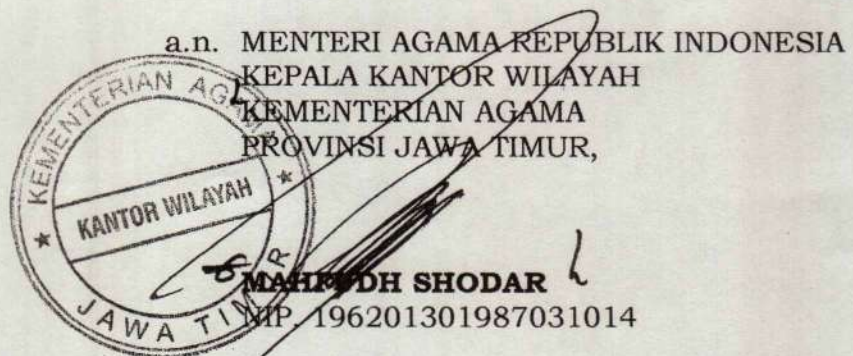 a.n. MENTERI AGAMA REPUBLIK INDONESIA
KEPALA KANTOR WILAYAH
KEMENTERIAN AGAMA
PROVINSI JAWA TIMUR,
KEMENTERIAN AGAMA
KANTOR WILAYAH
JAWA TIMUR
MAHFUDH SHODAR
NIP. 196201301987031014